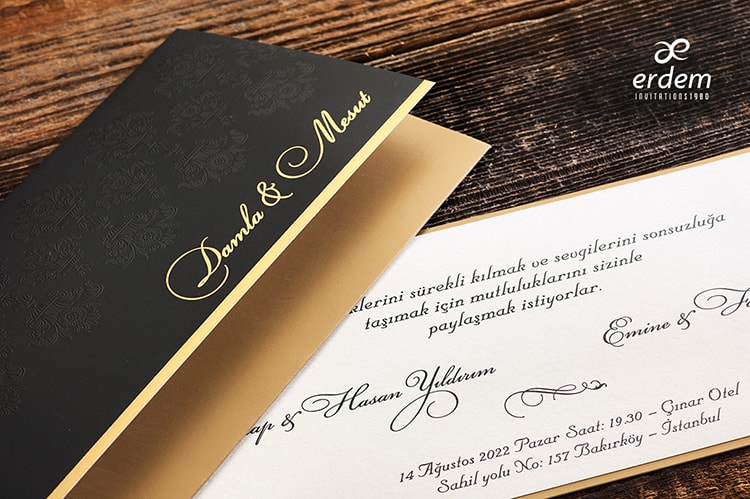 erdem
INVITATIONS1980
Damla & Mesut
sürekli kılmak ve sevgilerini sonsuzluğa
taşımak için mutluluklarını sizinle
paylaşmak istiyorlar.
Emine &
& Hasan Yıldırım
14 Ağustos 2022 Pazar Saat: 19:30 – Çınar Otel
Sahil yolu No: 157 Bakırköy – İstanbul